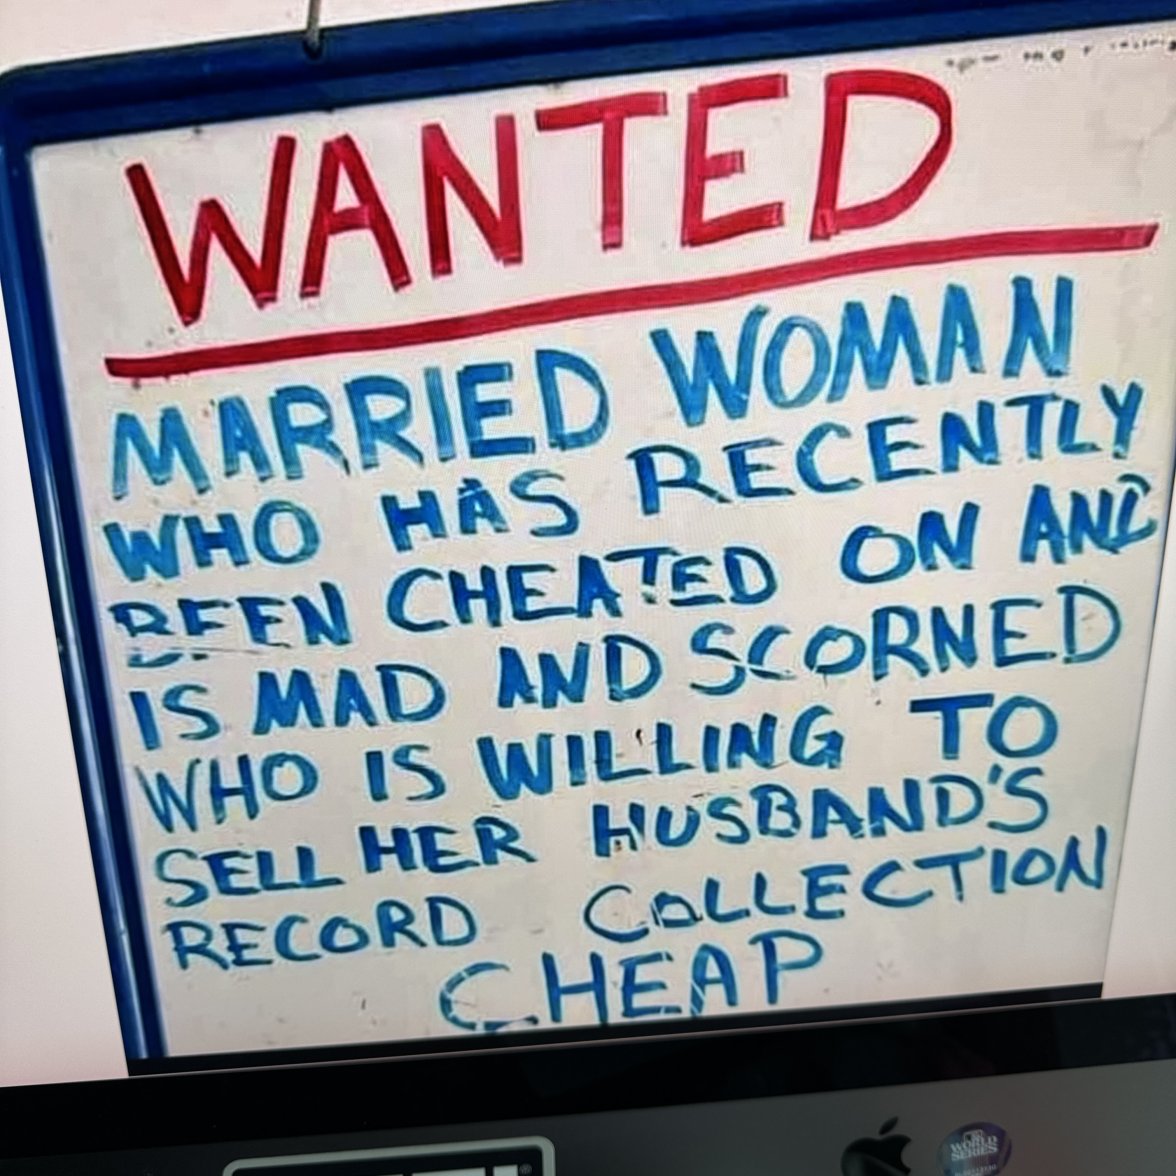 WANTED
MARRIED WOMAN
WHO HAS RECENTLY
BEEN CHEATED ON AND
IS MAD AND SCORNED
WHO IS WILLING TO
SELL HER HUSBAND'S
RECORD COLLECTION
CHEAP
WORLD
SERIES